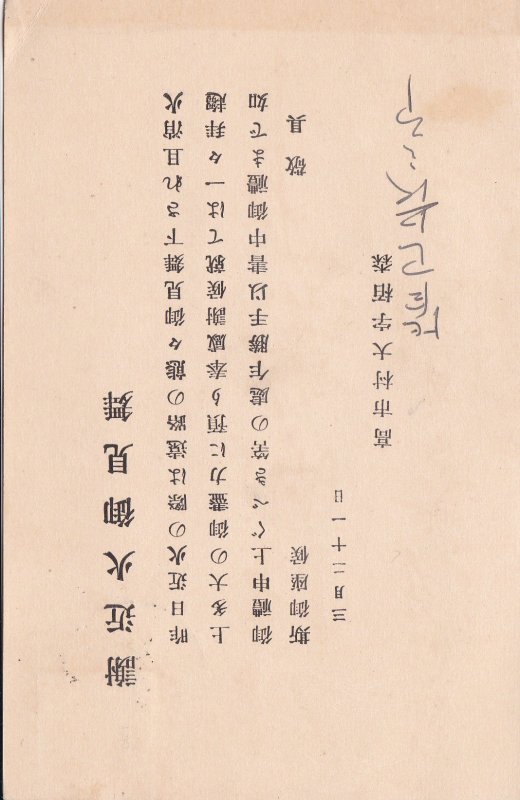 謝近火御見舞
昨日近火の際は遠路の態々御見舞下され且消火
上多大の御盡力に預り奉感謝候就ては一々拜趨
御禮申上ぐべき筈の處乍勝手以書中御禮まで如
斯御座候　敬具
三月二十一日
高市村大字栢森